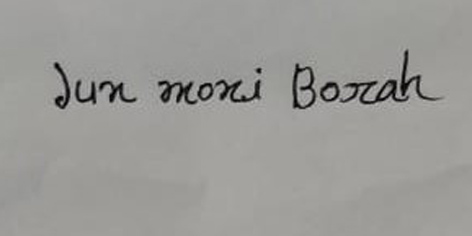 Jun moni Borah